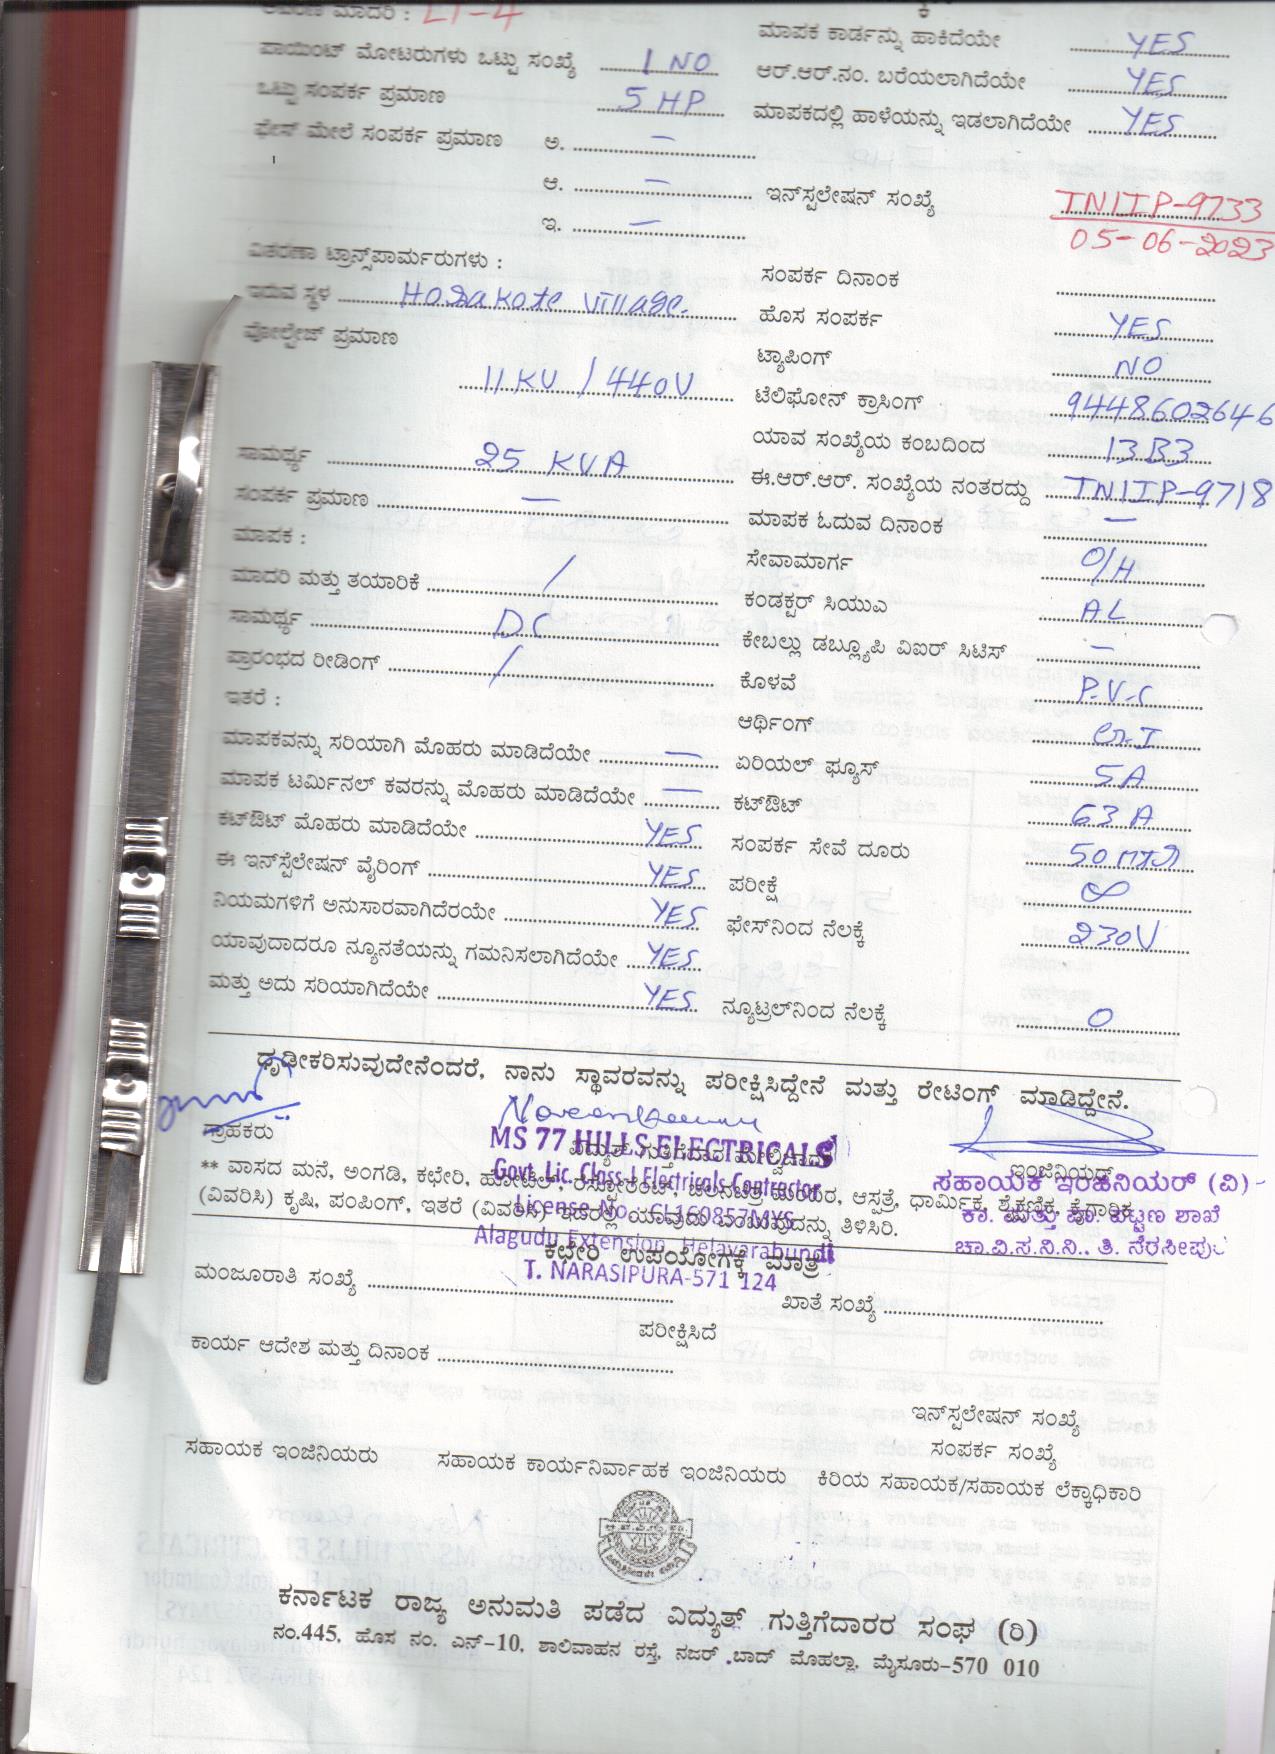 ಮಾದರಿ : LT-4
ಮಾಪಕ ಕಾರ್ಡನ್ನು ಹಾಕಿದೆಯೇ YES
ಪಾಯಿಂಟ್ ಮೋಟರುಗಳು ಒಟ್ಟು ಸಂಖ್ಯೆ 1 NO
ಆರ್.ಆರ್.ನಂ. ಬರೆಯಲಾಗಿದೆಯೇ YES
ಒಟ್ಟು ಸಂಪರ್ಕ ಪ್ರಮಾಣ 5 HP
ಮಾಪಕದಲ್ಲಿ ಹಾಳೆಯನ್ನು ಇಡಲಾಗಿದೆಯೇ YES
ಫೇಸ್ ಮೇಲೆ ಸಂಪರ್ಕ ಪ್ರಮಾಣ ಅ. —
ಆ. —
ಇನ್‌ಸ್ಪಲೇಷನ್ ಸಂಖ್ಯೆ TN1IP-9733
05-06-2023
ಇ. —
ವಿತರಣಾ ಟ್ರಾನ್ಸ್‌ಪಾರ್ಮರುಗಳು :
ಸಂಪರ್ಕ ದಿನಾಂಕ
ಇರುವ ಸ್ಥಳ Hosakote Village.
ಹೊಸ ಸಂಪರ್ಕ YES
ವೋಲ್ಟೇಜ್ ಪ್ರಮಾಣ
ಟ್ಯಾಪಿಂಗ್ NO
11 KV / 440V
ಟೆಲಿಫೋನ್ ಕ್ರಾಸಿಂಗ್ 9448602646
ಯಾವ ಸಂಖ್ಯೆಯ ಕಂಬದಿಂದ 13B3
ಸಾಮರ್ಥ್ಯ 25 KVA
ಈ.ಆರ್.ಆರ್. ಸಂಖ್ಯೆಯ ನಂತರದ್ದು TN1IP-9718
ಸಂಪರ್ಕ ಪ್ರಮಾಣ —
ಮಾಪಕ ಓದುವ ದಿನಾಂಕ —
ಮಾಪಕ :
ಸೇವಾಮಾರ್ಗ O/H
ಮಾದರಿ ಮತ್ತು ತಯಾರಿಕೆ /
ಕಂಡಕ್ಟರ್ ಸಿಯುಎ AL
ಸಾಮರ್ಥ್ಯ DC
ಕೇಬಲ್ಲು ಡಬ್ಲ್ಯೂಪಿ ವಿಐರ್ ಸಿಟಿಸ್ —
ಪ್ರಾರಂಭದ ರೀಡಿಂಗ್ /
ಕೊಳವೆ P.V.C
ಇತರೆ :
ಆರ್ಥಿಂಗ್ G.I
ಮಾಪಕವನ್ನು ಸರಿಯಾಗಿ ಮೊಹರು ಮಾಡಿದೆಯೇ —
ಏರಿಯಲ್ ಫ್ಯೂಸ್ 5A
ಮಾಪಕ ಟರ್ಮಿನಲ್ ಕವರನ್ನು ಮೊಹರು ಮಾಡಿದೆಯೇ —
ಕಟ್‌ಔಟ್ 63 A
ಕಟ್‌ಔಟ್ ಮೊಹರು ಮಾಡಿದೆಯೇ YES
ಸಂಪರ್ಕ ಸೇವೆ ದೂರು 50 MTR
ಈ ಇನ್‌ಸ್ಪೆಲೇಷನ್ ವೈರಿಂಗ್ YES
ಪರೀಕ್ಷೆ ∞
ನಿಯಮಗಳಿಗೆ ಅನುಸಾರವಾಗಿದೆರಯೇ YES
ಫೇಸ್‌ನಿಂದ ನೆಲಕ್ಕೆ 230V
ಯಾವುದಾದರೂ ನ್ಯೂನತೆಯನ್ನು ಗಮನಿಸಲಾಗಿದೆಯೇ YES
ಮತ್ತು ಅದು ಸರಿಯಾಗಿದೆಯೇ YES
ನ್ಯೂಟ್ರಲ್‌ನಿಂದ ನೆಲಕ್ಕೆ 0
ಧೃಡೀಕರಿಸುವುದೇನೆಂದರೆ, ನಾನು ಸ್ಥಾವರವನ್ನು ಪರೀಕ್ಷಿಸಿದ್ದೇನೆ ಮತ್ತು ರೇಟಿಂಗ್ ಮಾಡಿದ್ದೇನೆ.
ಗ್ರಾಹಕರು
MS 77 HILLS ELECTRICALS
ಇಂಜಿನಿಯರ್
Govt. Lic. Class-I Electricals Contractor
ಸಹಾಯಕ ಇಂಜಿನಿಯರ್ (ವಿ)
** ವಾಸದ ಮನೆ, ಅಂಗಡಿ, ಕಛೇರಿ, ಹೋಟೆಲ್, ರೆಸ್ಟೋರೆಂಟ್, ಚಲನಚಿತ್ರ ಮಂದಿರ, ಆಸ್ಪತ್ರೆ, ಧಾರ್ಮಿಕ, ಶೈಕ್ಷಣಿಕ, ಕೈಗಾರಿಕ
License No. : CL160857MYS
ಕಾ. ಮತ್ತು ಪಾ. ಪಟ್ಟಣ ಶಾಖೆ
(ವಿವರಿಸಿ) ಕೃಷಿ, ಪಂಪಿಂಗ್, ಇತರೆ (ವಿವರಿಸಿ) ಇದರಲ್ಲಿ ಯಾವುದು ಎಂಬುವುದನ್ನು ತಿಳಿಸಿರಿ.
Alagudu Extension, Helavarahundi
ಚಾ.ವಿ.ಸ.ನಿ.ನಿ., ತಿ. ನರಸೀಪುರ
ಕಛೇರಿ ಉಪಯೋಗಕ್ಕೆ ಮಾತ್ರ
T. NARASIPURA-571 124
ಮಂಜೂರಾತಿ ಸಂಖ್ಯೆ
ಖಾತೆ ಸಂಖ್ಯೆ
ಪರೀಕ್ಷಿಸಿದೆ
ಕಾರ್ಯ ಆದೇಶ ಮತ್ತು ದಿನಾಂಕ
ಇನ್‌ಸ್ಪಲೇಷನ್ ಸಂಖ್ಯೆ
ಸಂಪರ್ಕ ಸಂಖ್ಯೆ
ಸಹಾಯಕ ಇಂಜಿನಿಯರು ಸಹಾಯಕ ಕಾರ್ಯನಿರ್ವಾಹಕ ಇಂಜಿನಿಯರು ಕಿರಿಯ ಸಹಾಯಕ/ಸಹಾಯಕ ಲೆಕ್ಕಾಧಿಕಾರಿ
ಕರ್ನಾಟಕ ರಾಜ್ಯ ಅನುಮತಿ ಪಡೆದ ವಿದ್ಯುತ್ ಗುತ್ತಿಗೆದಾರರ ಸಂಘ (ರಿ)
ನಂ.445, ಹೊಸ ನಂ. ಎನ್-10, ಶಾಲಿವಾಹನ ರಸ್ತೆ, ನಜರ್ ಬಾದ್ ಮೊಹಲ್ಲಾ, ಮೈಸೂರು-570 010